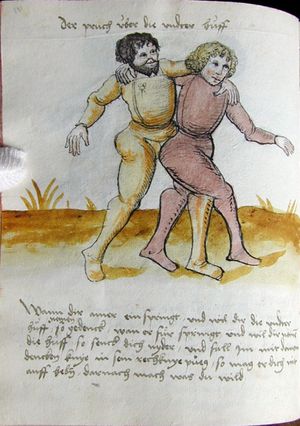 Der pruch über die under hüff
Wann dir ainer ein springt und wil dir die under
hüff so gedenck wan er für springt und wil dir
die hüff so senck dich nyder und fall im mit
dencken knye in sein rechknye so mag er dich nit
auff hebn darnach mach was du wild